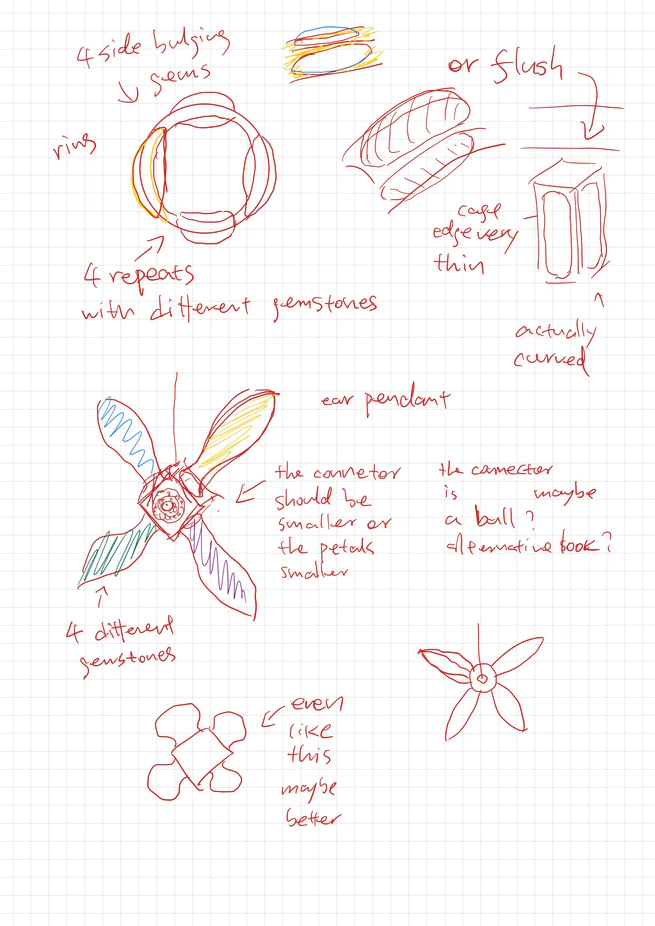 4 side bulging
gems
or flush
ring
cage
edge very
thin
4 repeats
with different gemstones
actually
curved
ear pendant
the connetor
should be
smaller or
the petals
smaller
the connector
is maybe
a ball?
alternative look?
4 different
gemstones
even
like
this
maybe
better